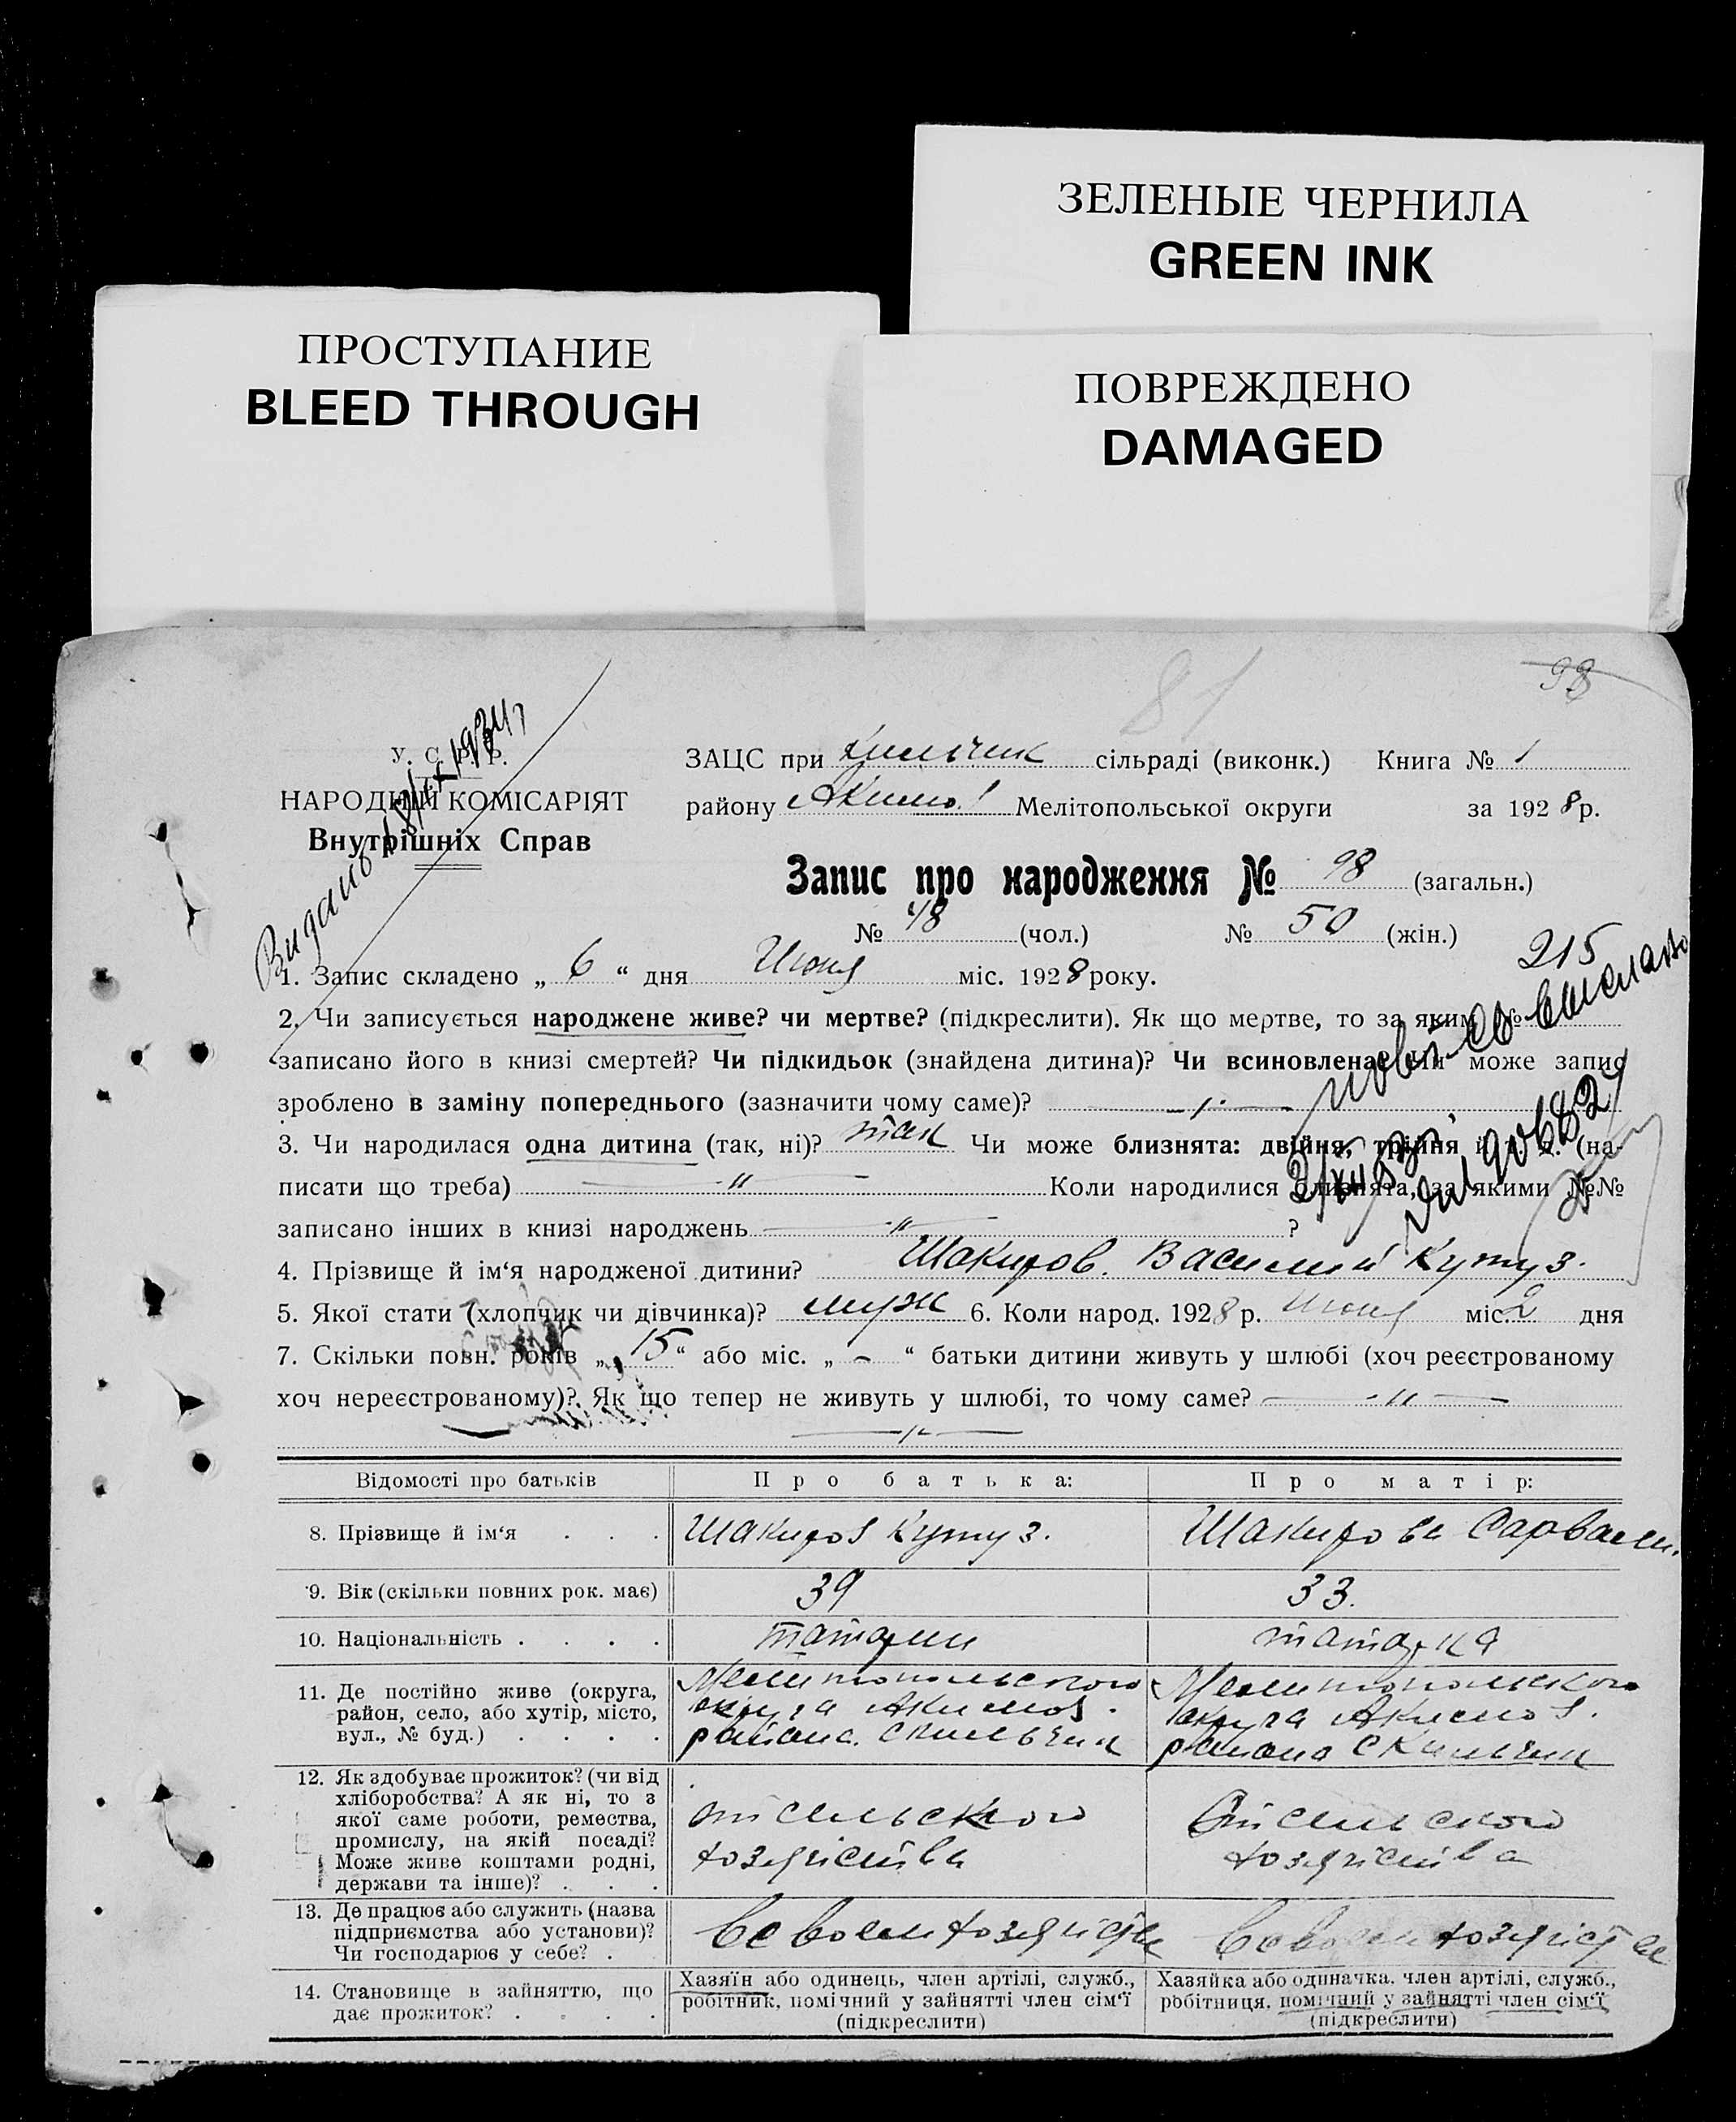 ЗЕЛЕНЫЕ ЧЕРНИЛА
GREEN INK
ПРОСТУПАНИЕ
BLEED THROUGH
ПОВРЕЖДЕНО
DAMAGED
81
98
У. С. Р. Р.
НАРОДНІЙ КОМІСАРІЯТ
Внутрішніх Справ
Видано 1934
ЗАЦС при сільраді (виконк.) Книга № 1
району Акимо. Мелітопольської округи за 1928 р.
Запис про народження № 98 (загальн.)
№ 48 (чол.) № 50 (жін.)
215
1. Запис складено „ 6 “ дня Июня міс. 1928 року.
2. Чи записується народжене живе? чи мертве? (підкреслити). Як що мертве, то за яким №
записано його в книзі смертей? Чи підкидьок (знайдена дитина)? Чи всиновлена? Чи може запис
зроблено в заміну попереднього (зазначити чому саме)?
3. Чи народилася одна дитина (так, ні)? так Чи може близнята: двійня, трійня й т. д. (на-
писати що треба) Коли народилися близнята, за якими №№
записано інших в книзі народжень ?
4. Прізвище й ім‘я народженої дитини? Шакиров. Василий Кутуз.
5. Якої стати (хлопчик чи дівчинка)? муж 6. Коли народ. 1928 р. Июня міс. 2 дня
7. Скільки повн. років „ 15 “ або міс. „ - “ батьки дитини живуть у шлюбі (хоч реєстрованому
хоч нереєстрованому)? Як що тепер не живуть у шлюбі, то чому саме?
Відомості про батьків Про батька: Про матір:
8. Прізвище й ім‘я . . . Шакиров Кутуз. Шакирова Сарвам.
9. Вік (скільки повних рок. має) 39 33.
10. Національність . . . . татарин татарка
11. Де постійно живе (округа,
район, село, або хутір, місто,
вул., № буд.) . . . .
Мелитопольского
округа Акимов.
района. с Кильчик
Мелитопольского
округа Акимов.
района с Кильчик
12. Як здобуває прожиток? (чи від
хліборобства? А як ні, то з
якої саме роботи, ремества,
промислу, на якій посаді?
Може живе коштами родні,
держави та інше)? . . .
от сельского
хозяйства
От сельского
хозяйства
13. Де працює або служить (назва
підприємства або установи)?
Чи господарює у себе? .
в своем хозяйстве
в своем хозяйстве
14. Становище в зайняттю, що
дає прожиток? . . . .
Хазяїн або одинець, член артілі, служб.,
робітник, помічний у зайнятті член сім‘ї
(підкреслити)
Хазяйка або одиначка. член артілі, служб.,
робітниця, помічний у зайнятті член сім‘ї
(підкреслити)